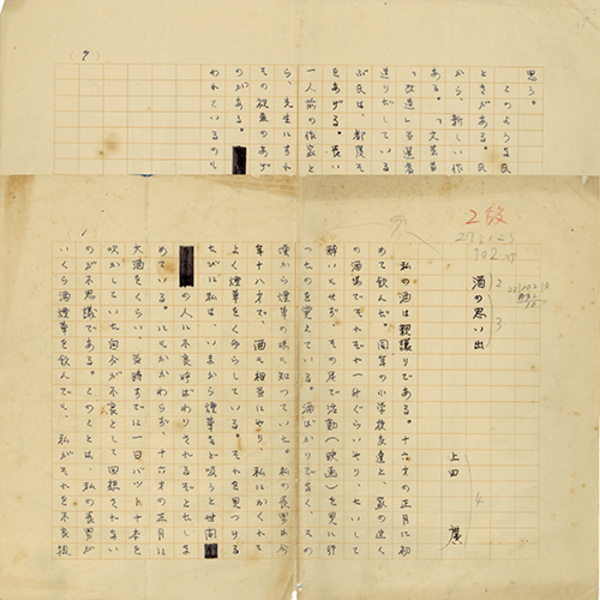 (7)
思う。
このような氏
ときがある。氏
から、新しい作
ある。「文芸首
「改造」当選者
送りだしている
ぶ氏は、都度そ
をあげる。
一人前の作家と
ら、先生にすれ
その
のがある。
われているのも
(1)
2段
酒の思い出
上田 廣
私の酒は親譲りである。十六才の正月に初
めて飲んだ。同年の小学校友達と、家の近く
の酒場でそれぞれ一升ぐらいやり、
酔いもせず、その足で活動(映画)を見に行
ったのを覚えている。酒ばかりでなく、その
頃から煙草の味も知っていた。私の長男は今
年十八才で、酒も相当にやり、私にかくれて
よく煙草をくゆらしている。それを見つける
たびに私は、いまから煙草など吸うと世間
の人に不良呼ばわりされるぞとたしな
めている。にもかかわらず、十六才の正月に
大酒をくらい、当時すでに一日バット十本を
吹かしていた自分が不良として回想されない
のが不思議である。このことは、私の長男が
いくら酒煙草を飲んでも、私がそれを不良扱